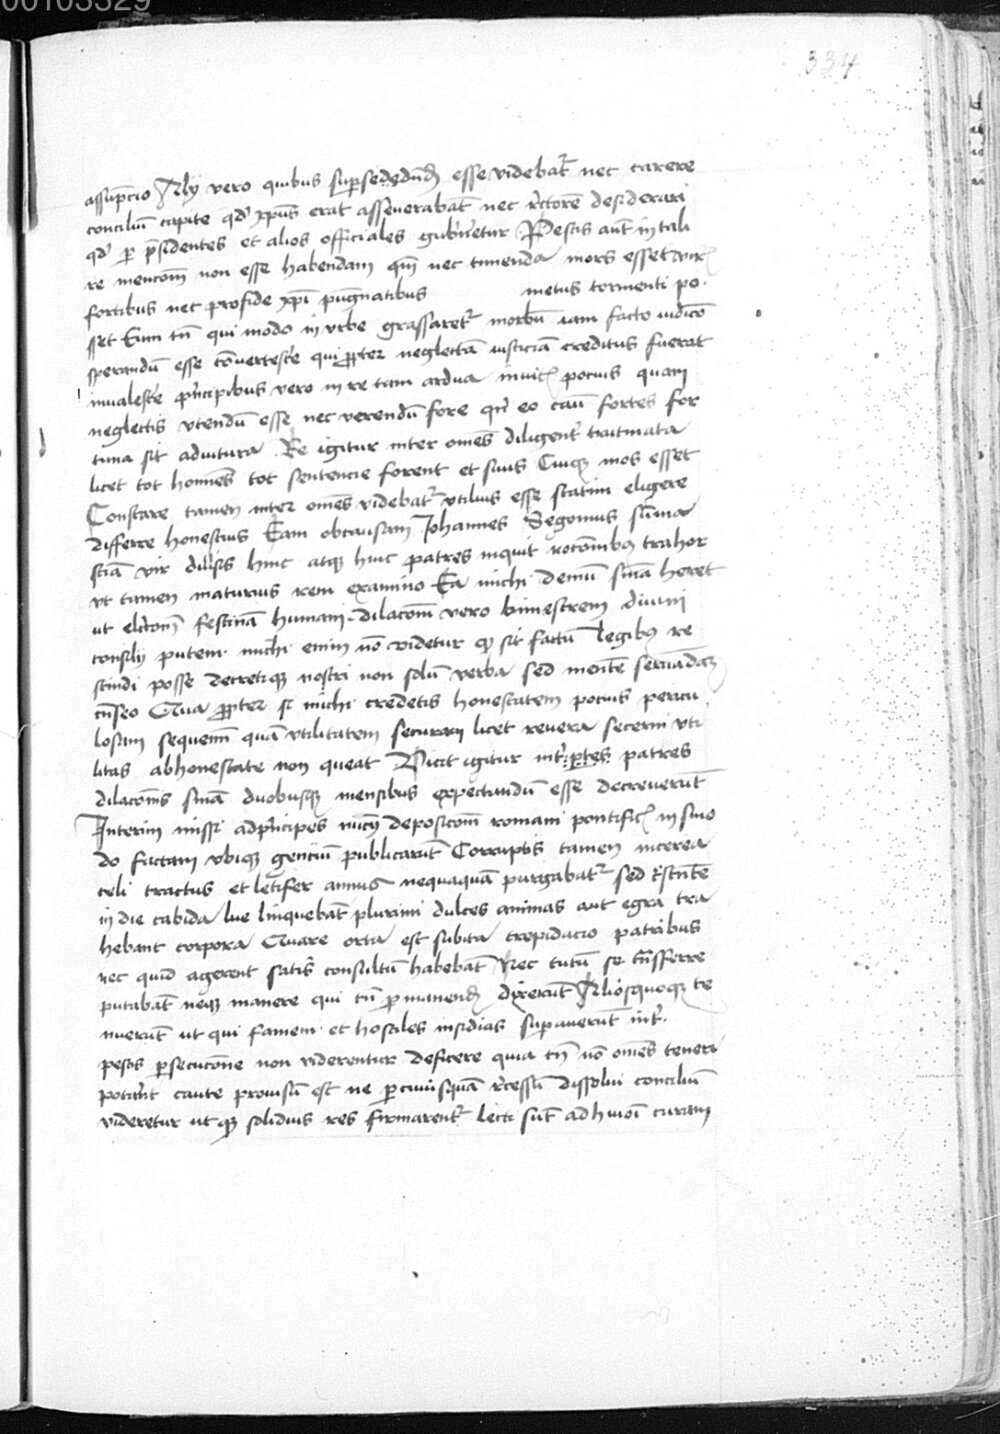 00103329
334
assūpcio Alij vero quibus supersededūdū esse videbat̄ nec carere
conciliū capite qd' xpūs erat asseverabāt nec rc̄torē desiderari
qd' per pr̄sidentes et alios officiales gub'netur Pestis aūt in tali
re mencōm̄ non esse habendam qm̄ nec timenda mors esset viris
fortibus nec pro fide xpī pugnatibus metus tormenti po.
sset Eum tn̄ qui modo in vrbe grassaret̄ morbū iam facto iudicō
sperandū esse cōvertescē qui propter neglectā iusticiā creditus fuerat
invalescē prīcipibus vero in re tam ardua invitis pocius quam
neglectis vtendū esse nec verendū fore qn̄ eo cāu fortes for
tuna sit adiutura Re igitur inter om̄es diligent̄ trutinata
licet tot hom̄es tot sentencie forent et suus Cuiqꝫ mos esset
Constare tamen inter om̄es videbat̄ vtilius esse statim eligere
differre honestius Eam ob causam Johannes Segovius sūma
sciā vir diu'sis hinc atqꝫ hinc patres inquit rōcōnibꝫ trahor
vt tamen maturius rem examino Ea michi demū sn̄ia heret
ut electōm̄ festinā humani dilacōm̄ vero bimestrem diuini
consilij putem michi enim nō videtur qꝫ sit factū legibꝫ re
scindi posse decretiqꝫ nostri non solū verba sed mentē servādaꝫ
cn̄seo Qua propter si michi credetis honestatem pocius pericu
losam sequemī quā vtilitatem securam licet revera secerni vti
litas ab honestate non queat Vicit igitur int̄ partes patres
dilacōnis sn̄iā duobusqꝫ mensibus expectandū esse decreverūt
Interim missi ad prīcipes nūcij deposicōm̄ romani pontificis in sino
do factam vbiqꝫ genciū publicarūt Corruptis tamen interea
celi tractus et letifer annus nequaquā purgabat̄ sed cr̄scēte
in die tabida lue linquebāt plurimi dulces animas aut egra tra
hebant corpora Quare orta est subita trepidacio patribus
nec quid agerent satis consultū habebāt Nec tutū se trāsferre
putabāt neqꝫ manere qui tn̄ permanend' dixerūt Aliosquoqꝫ te
nuerūt ut qui famem et hostiles insidias superaverūt int̄
pestis persecucōne non viderentur deficere quia tn̄ nō om̄es teneri
potue̅rt caute provisū est ne per cuiusquā rc̄essū dissolui conciliū
videretur ut qꝫ solidius res firmarent̄ lecti sūt ad huiōi curam